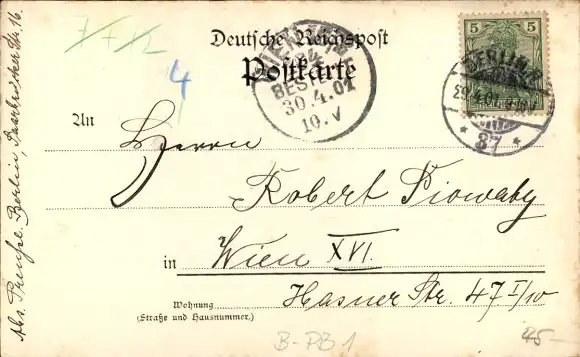 7/7 12
4
Deutsche Reichspost
Postkarte
WIEN
BESTELLT
30.4.01
10.V
5
BERLIN
29.4.01
* 87 *
An
Herrn
Robert Piowaty
in Wien XVI.
Wohnung
(Straße und Hausnummer.)
Hasner Str. 47 I/10
Abs. Berlin, Str. 16.
B-PB 1
45-